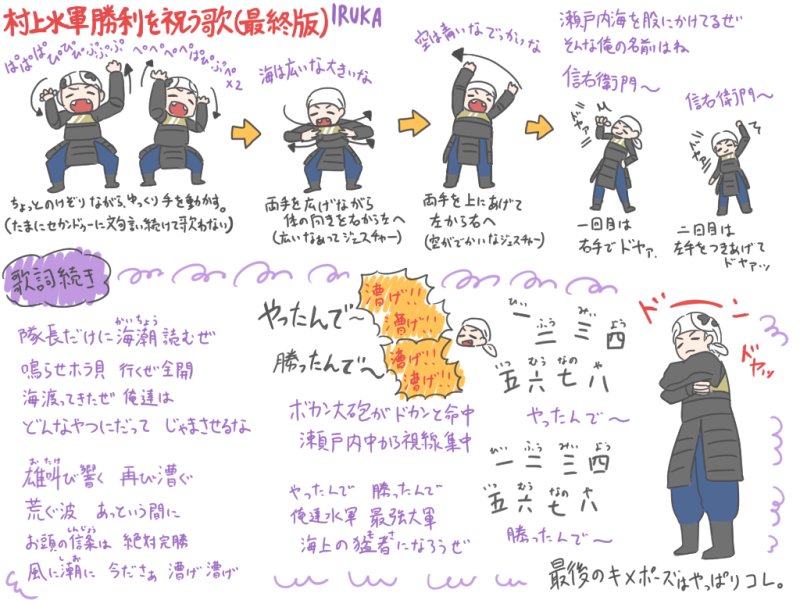 村上水軍勝利を祝う歌(最終版)
IRUKA
ぱぱぱぴぴぴぷぷぷ ぺぺぺぺぱぴぷぺ
×2
ちょっとのけぞりながら、ゆっくり手を動かす。
(たまにセカンドゥーに文句言い続けて歌わない)
海は広いな大きいな
両手を広げながら
体の向きを右から左へ
(広いなぁってジェスチャー)
空は青いなでっかいな
両手を上にあげて
左から右へ
(空がでかいなジェスチャー)
瀬戸内海を股にかけてるぜ
そんな俺の名前はね
信右衛門〜
ドヤァ
一回目は
右手でドヤァ。
信右衛門〜
ドヤァ
二回目は
左手をつきあげて
ドヤァッ
歌詞続き
隊長だけに海潮読むぜ
かいちょう
鳴らせホラ貝 行くぜ全開
海渡ってきたぜ 俺達は
どんなやつにだって じゃまさせるな
おたけ
雄叫び響く 再び漕ぐ
荒ぐ波 あっという間に
しんじょう
お頭の信条は 絶対完勝
しお
風に潮に 今ださぁ 漕げ漕げ
やったんで〜
漕げ!!
漕げ!!
勝ったんで〜
漕げ!!
漕げ!!
ボカン大砲がドカンと命中
瀬戸内中から視線集中
やったんで 勝ったんで
俺達水軍 最強大軍
もさ
海上の猛者になろうぜ
ひい ふう みい よう
一 二 三 四
いつ むう なの や
五 六 七 八
やったんで〜
ひい ふう みい よう
一 二 三 四
いつ むう なの や
五 六 七 八
勝ったんで〜
ドーン
ドヤッ
最後のキメポーズはやっぱりコレ。